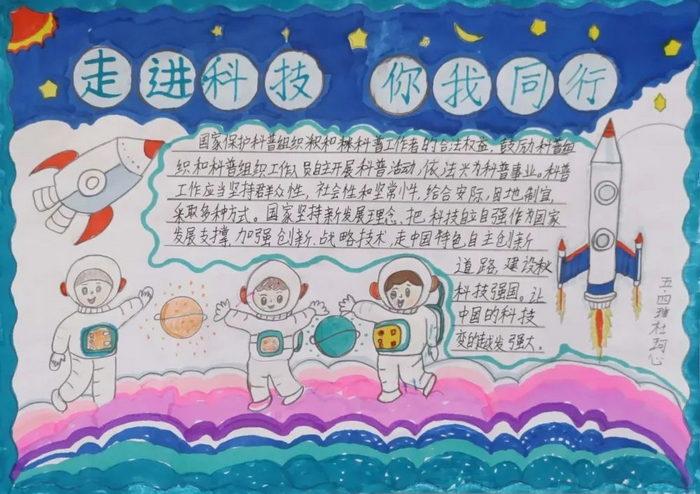 走进科技 你我同行
国家保护科普组织积和科普工作者的合法权益,鼓励科普组
织和科普组织工作人员自主开展科普活动,依法兴为科普事业。科普
工作应当坚持群众性、社会性和坚常小牛,结合实际,因地制宜,
采取多种方式。国家坚持新发展理念、把科技自立自强作为国家
发展支撑,加强创新、战略技术,走中国特色自主创新
道路,建设
科技强国。让
中国的科技
变的越发强大。
五.四班杜珂心